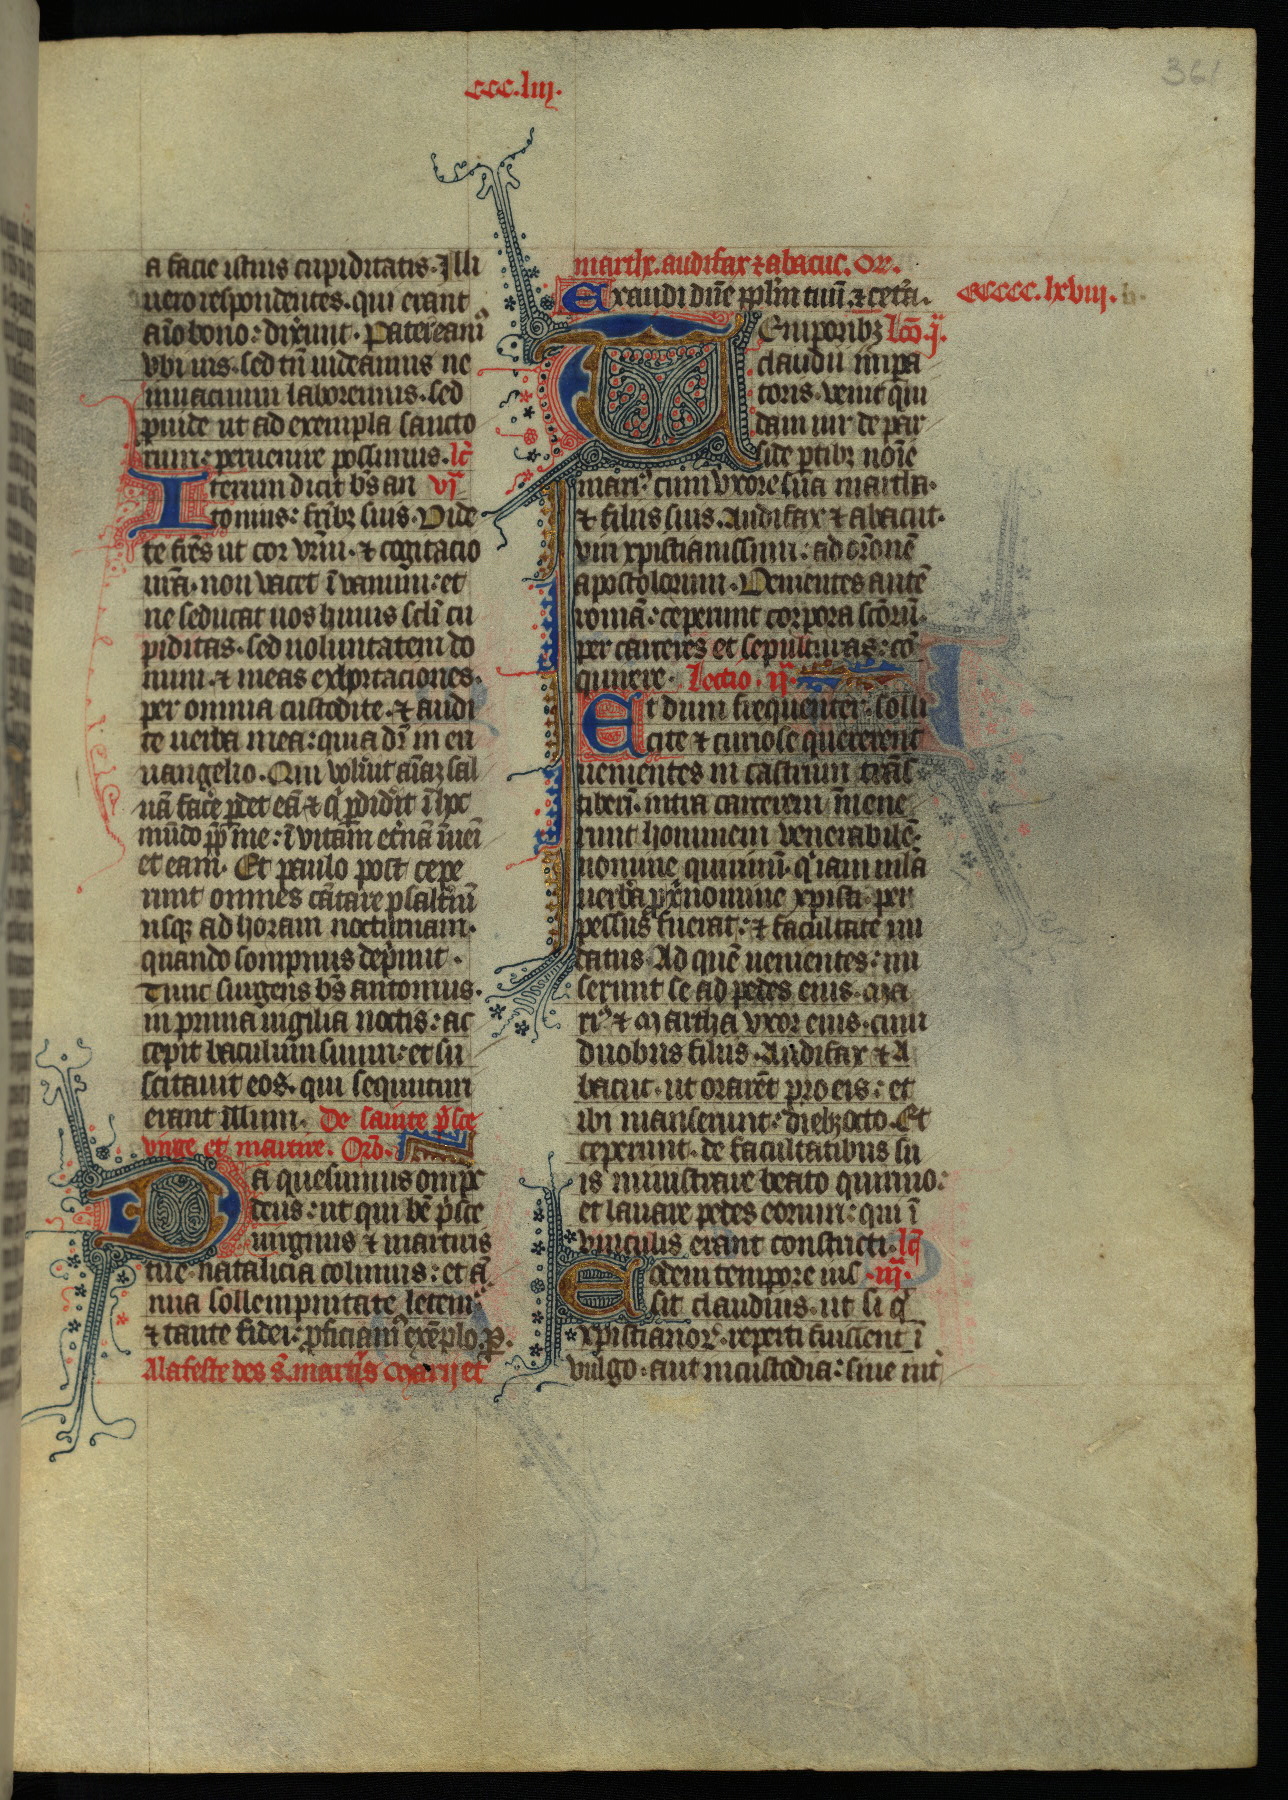 361
ccc.liij.
a facie istius cupiditatis. Illi
uero respondentes. qui erant
aĩo bono: dixerunt. Pater eamꝰ
vbi uis. sed tñ uideamus ne
inuacuum laboremus. sed
ꝓuide ut ad exempla sancto
rum: peruenire possimus. lc̃
Iterum dicit bs̃ an vj
tonius: frĩbꝫ suis. Vide
te frẽs ut cor vrm̃. & cogitacio
urã. non vacet ĩ vanum: et
ne seducat uos huius sclĩ cu
piditas. sed uoluntatem do
mini. & meas exhortaciones.
per omnia custodite. & audi
te uerba mea: quia dr̃ in eu
uangelio. Qui volũit aĩaꝫ sal
uã facẽ ꝑdet eã & q̃ ꝑdidit ĩ hoc
mũdo ꝓp̃ me: ĩ vitam et̃nã ĩueñ
et eam. Et paulo post cepe
runt omnes cãtare psalt̃iũ
usqꝫ ad horam nocturnam.
quando sompnus dep̃mit.
Tunc surgens bs̃ antonius.
in prima uigilia noctis: ac
cepit baculum suum: et su
scitauit eos. qui sequuturi
erant illum. De sainte p̃sce
virge et martire. Orõ.
Da quesumus omps
deus: ut qui bẽ p̃sce
uirginis & martiris
tue natalicia colimus: et ã
nua sollempnitate letemꝰ.
& tante fidei: ꝓficiamꝰ exẽplo. P.
A la feste des s. martis Marij et
marthe. audifax & abacuc. Or.
Exaudi dñe ppl̃m tuũ. & cet̃a.
ccccc. lxviij. b.
Temporibꝫ Lcõ j.
claudii impa
toris. venit qui
dam uir de per
side ꝑtibꝫ noĩe
mariꝰ cum vxore sua martha.
& filiis suis. Audifax & abacut.
viri xpistianissimi: ad orõnẽ
apostolorum. Venientes autẽ
romã: ceperunt corpora sc̃orũ.
per carceres et sepulturas: cõ
quirere. Lectio. ij.
Et dum frequenter. solli
cite & curiose quererent
uenientes in castrum trãs
tiberi. intra carcerem ĩuene
runt hominem venerabilẽ.
nomine quirinũ. qͥ iam mlã
uerbera ꝓ xp̃i nomine xpisti. per
pessus fuerat: & facultate nu
datus. Ad quẽ uenientes: mi
serunt se ad pedes eius. Ma
riꝰ & Martha vxor eius. cum
duobus filiis. Audifax & A
bacut. ut orarẽt pro eis: et
ibi manserunt: diebꝫ octo. Et
ceperunt. de facultatibus su
is ministrare beato quirino:
et lauare pedes eorum: qui ĩ
vinculis erant constricti. lc̃
Eodem tempore ius iij.
sit claudius. ut si qͥ
xpistianorꝝ. reperti fuissent ĩ
vulgo. aut in custodia: siue int̃